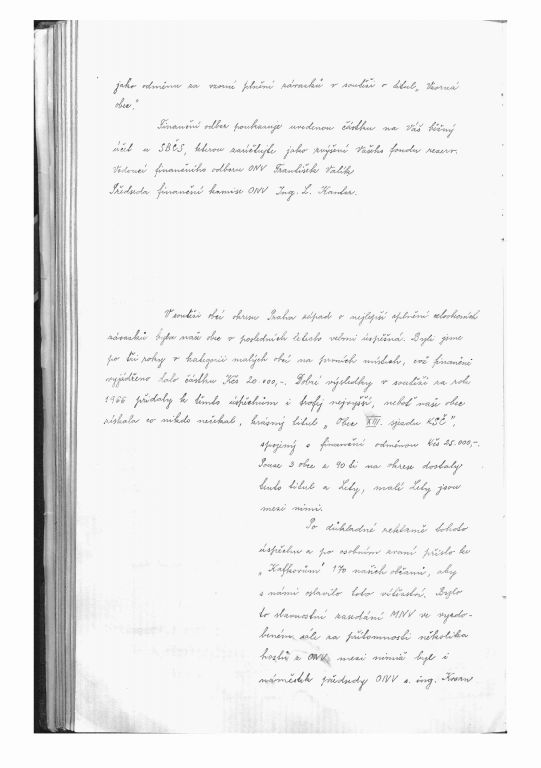 jako odměnu za vzorné plnění závazků v soutěži o titul „Vzorná
obec."
Finanční odbor poukazuje uvedenou částku na Váš běžný
účet u SBČS, kterou zaúčtujte jako zvýšení Vašeho fondu rezerv.
Vedoucí finančního odboru ONV František Valík
Předseda finanční komise ONV Ing. L. Kanter.
V soutěži obcí okresu Praha západ o nejlepší splnění celoročních
závazků byla naše obec v posledních letech velmi úspěšná. Byli jsme
po tři roky v kategorii malých obcí na prvních místech, což finančně
vyjádřeno dalo částku Kčs 20.000,-. Dobré výsledky v soutěži za rok
1966 přidaly k těmto úspěchům i trofej nejvyšší, neboť naše obec
získala co nikdo nečekal, krásný titul „Obec XIII. sjezdu KSČ",
spojený s finanční odměnou Kčs 25.000,-.
Pouze 3 obce z 90 ti na okrese dostaly
tento titul a Lety, malé Lety jsou
mezi nimi.
Po důkladné reklamě tohoto
úspěchu a po osobním zvaní přišlo ke
„Kafkovům" 170 našich občanů, aby
s námi oslavilo toto vítězství. Bylo
to slavnostní zasedání MNV ve vyzdo-
beném sále za přítomnosti několika
hostů z ONV mezi nimiž byl i
náměstek předsedy ONV s. ing.